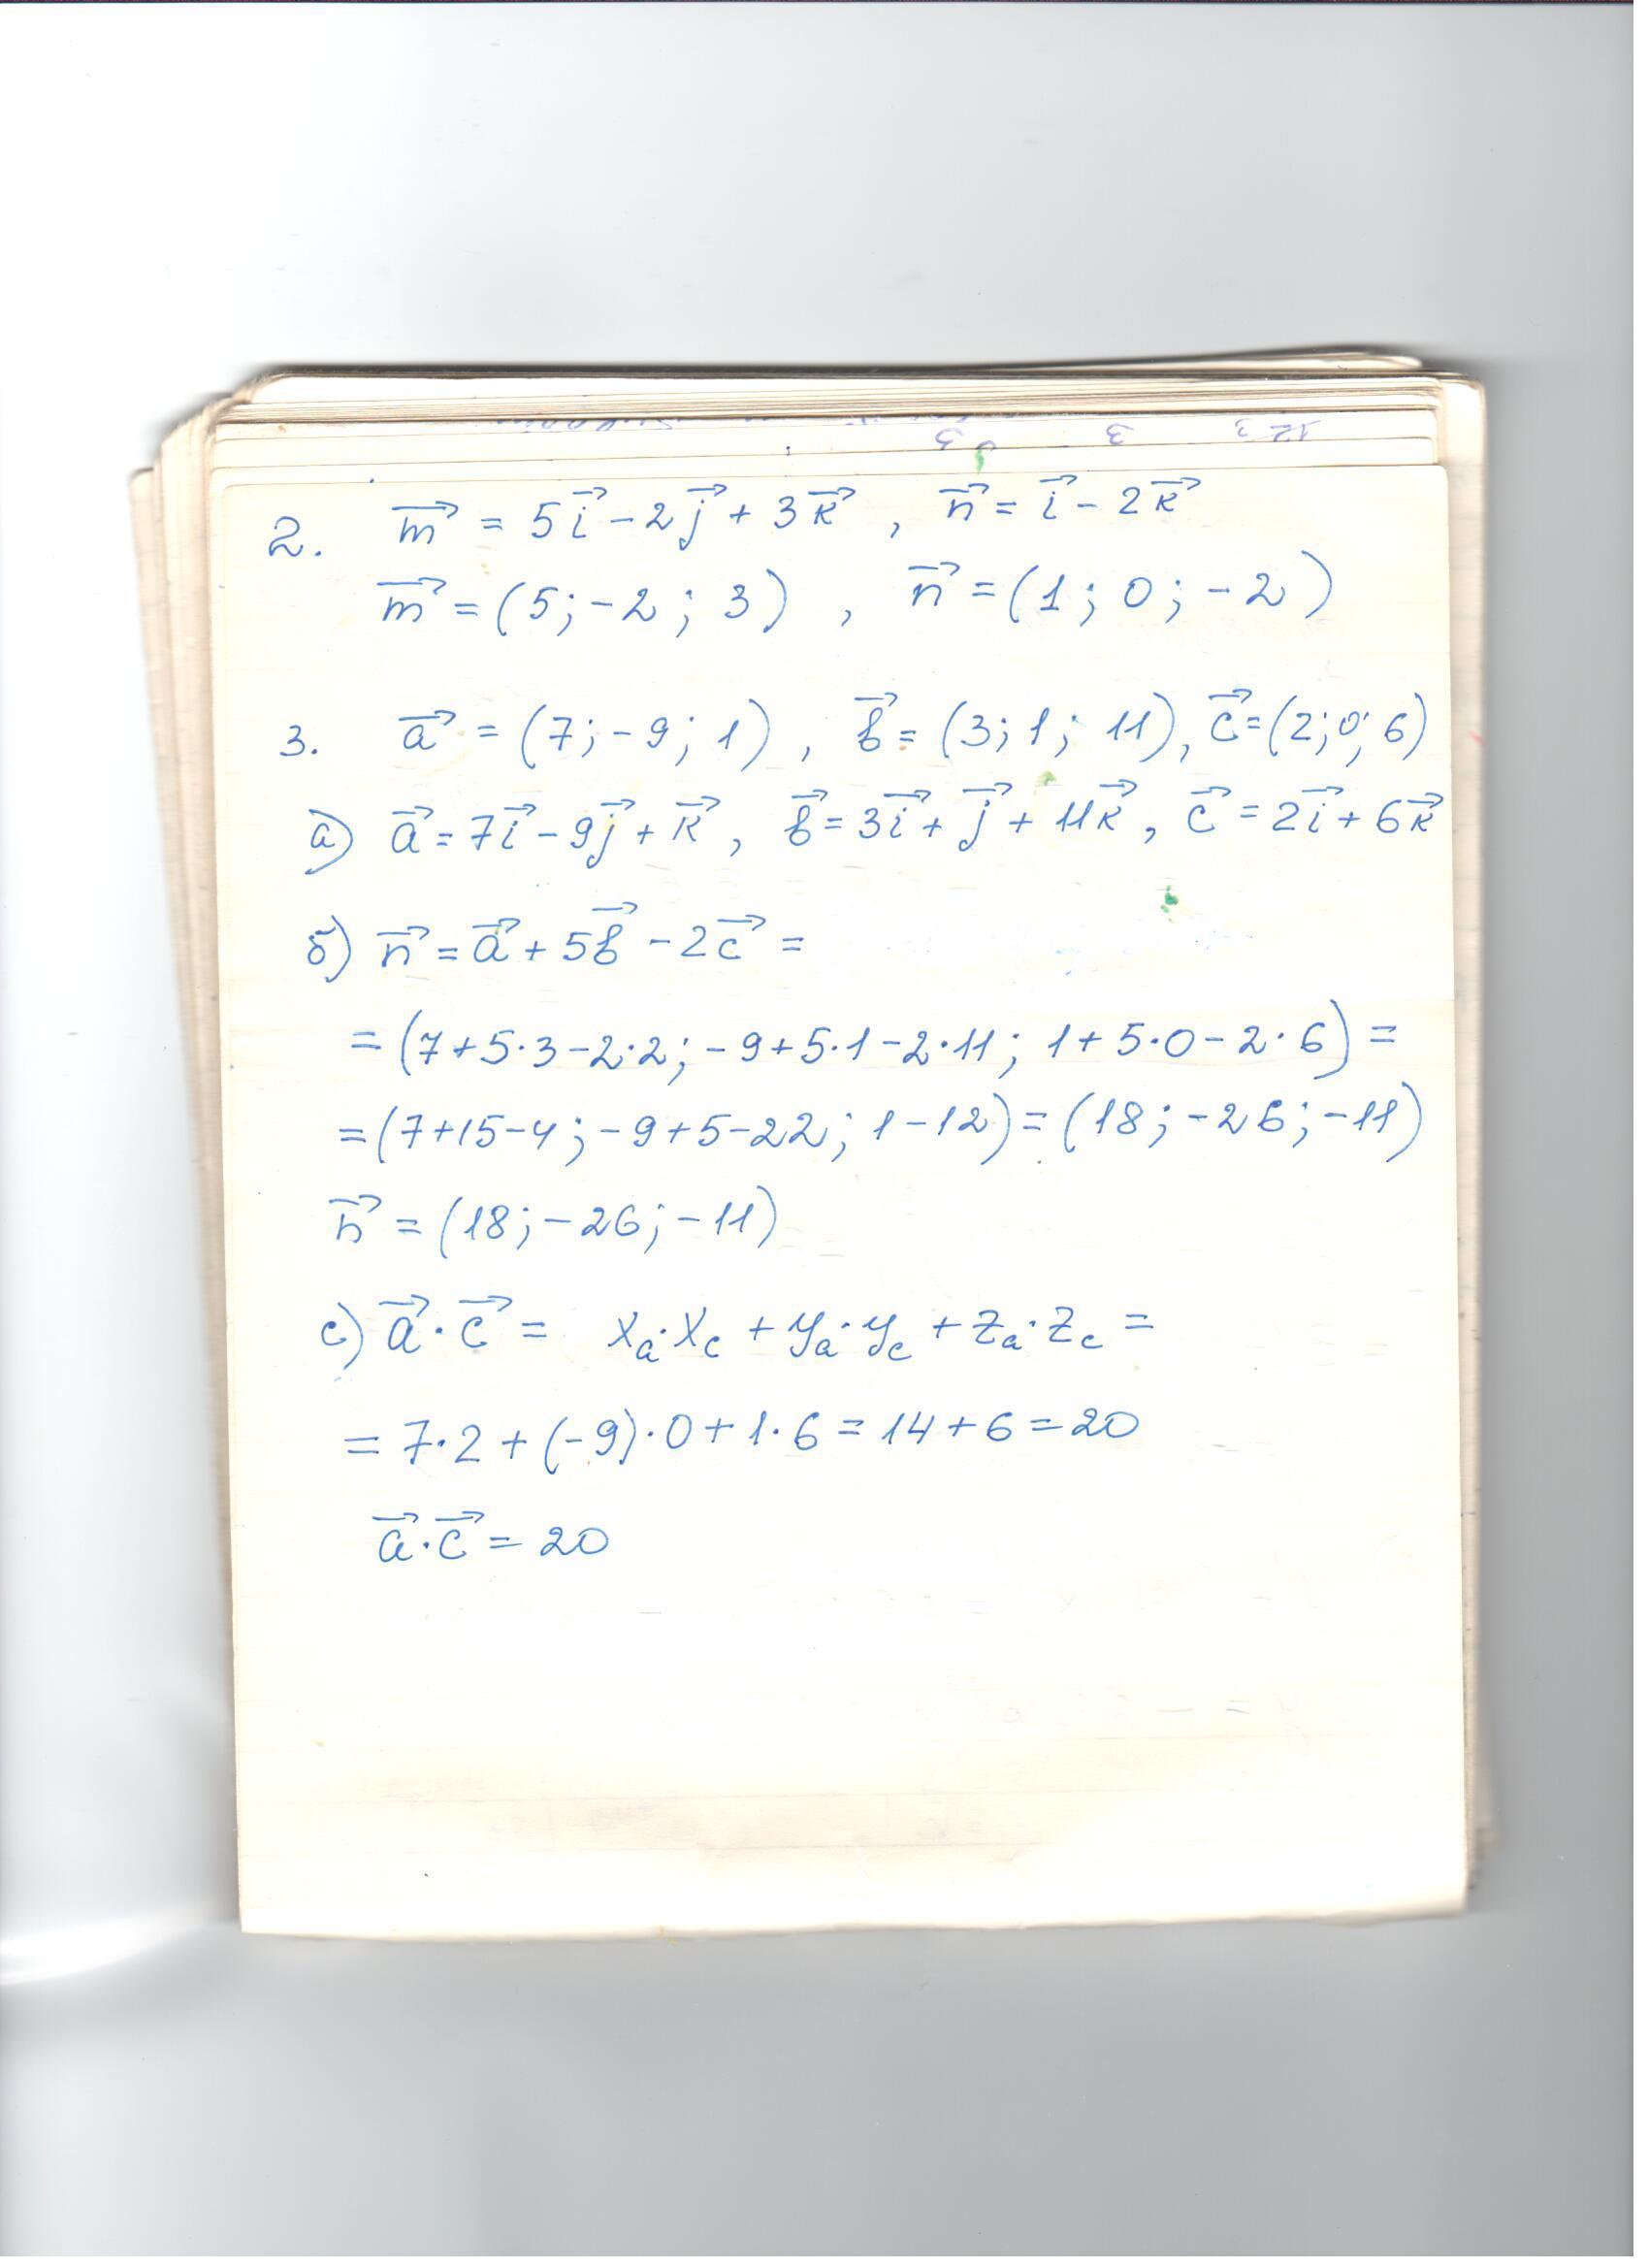 12 3 3 3
2. m⃗ = 5i⃗ - 2j⃗ + 3k⃗ , n⃗ = i⃗ - 2k⃗
m⃗ = (5; -2; 3) , n⃗ = (1; 0; -2)
3. a⃗ = (7; -9; 1) , b⃗ = (3; 1; 11), c⃗ = (2; 0; 6)
а) a⃗ = 7i⃗ - 9j⃗ + k⃗ , b⃗ = 3i⃗ + j⃗ + 11k⃗ , c⃗ = 2i⃗ + 6k⃗
б) n⃗ = a⃗ + 5b⃗ - 2c⃗ =
= (7+5·3-2·2; -9+5·1-2·11; 1+5·0-2·6) =
= (7+15-4; -9+5-22; 1-12) = (18; -26; -11)
n⃗ = (18; -26; -11)
с) a⃗ · c⃗ = xₐ·x_c + yₐ·y_c + zₐ·z_c =
= 7·2 + (-9)·0 + 1·6 = 14 + 6 = 20
a⃗ · c⃗ = 20